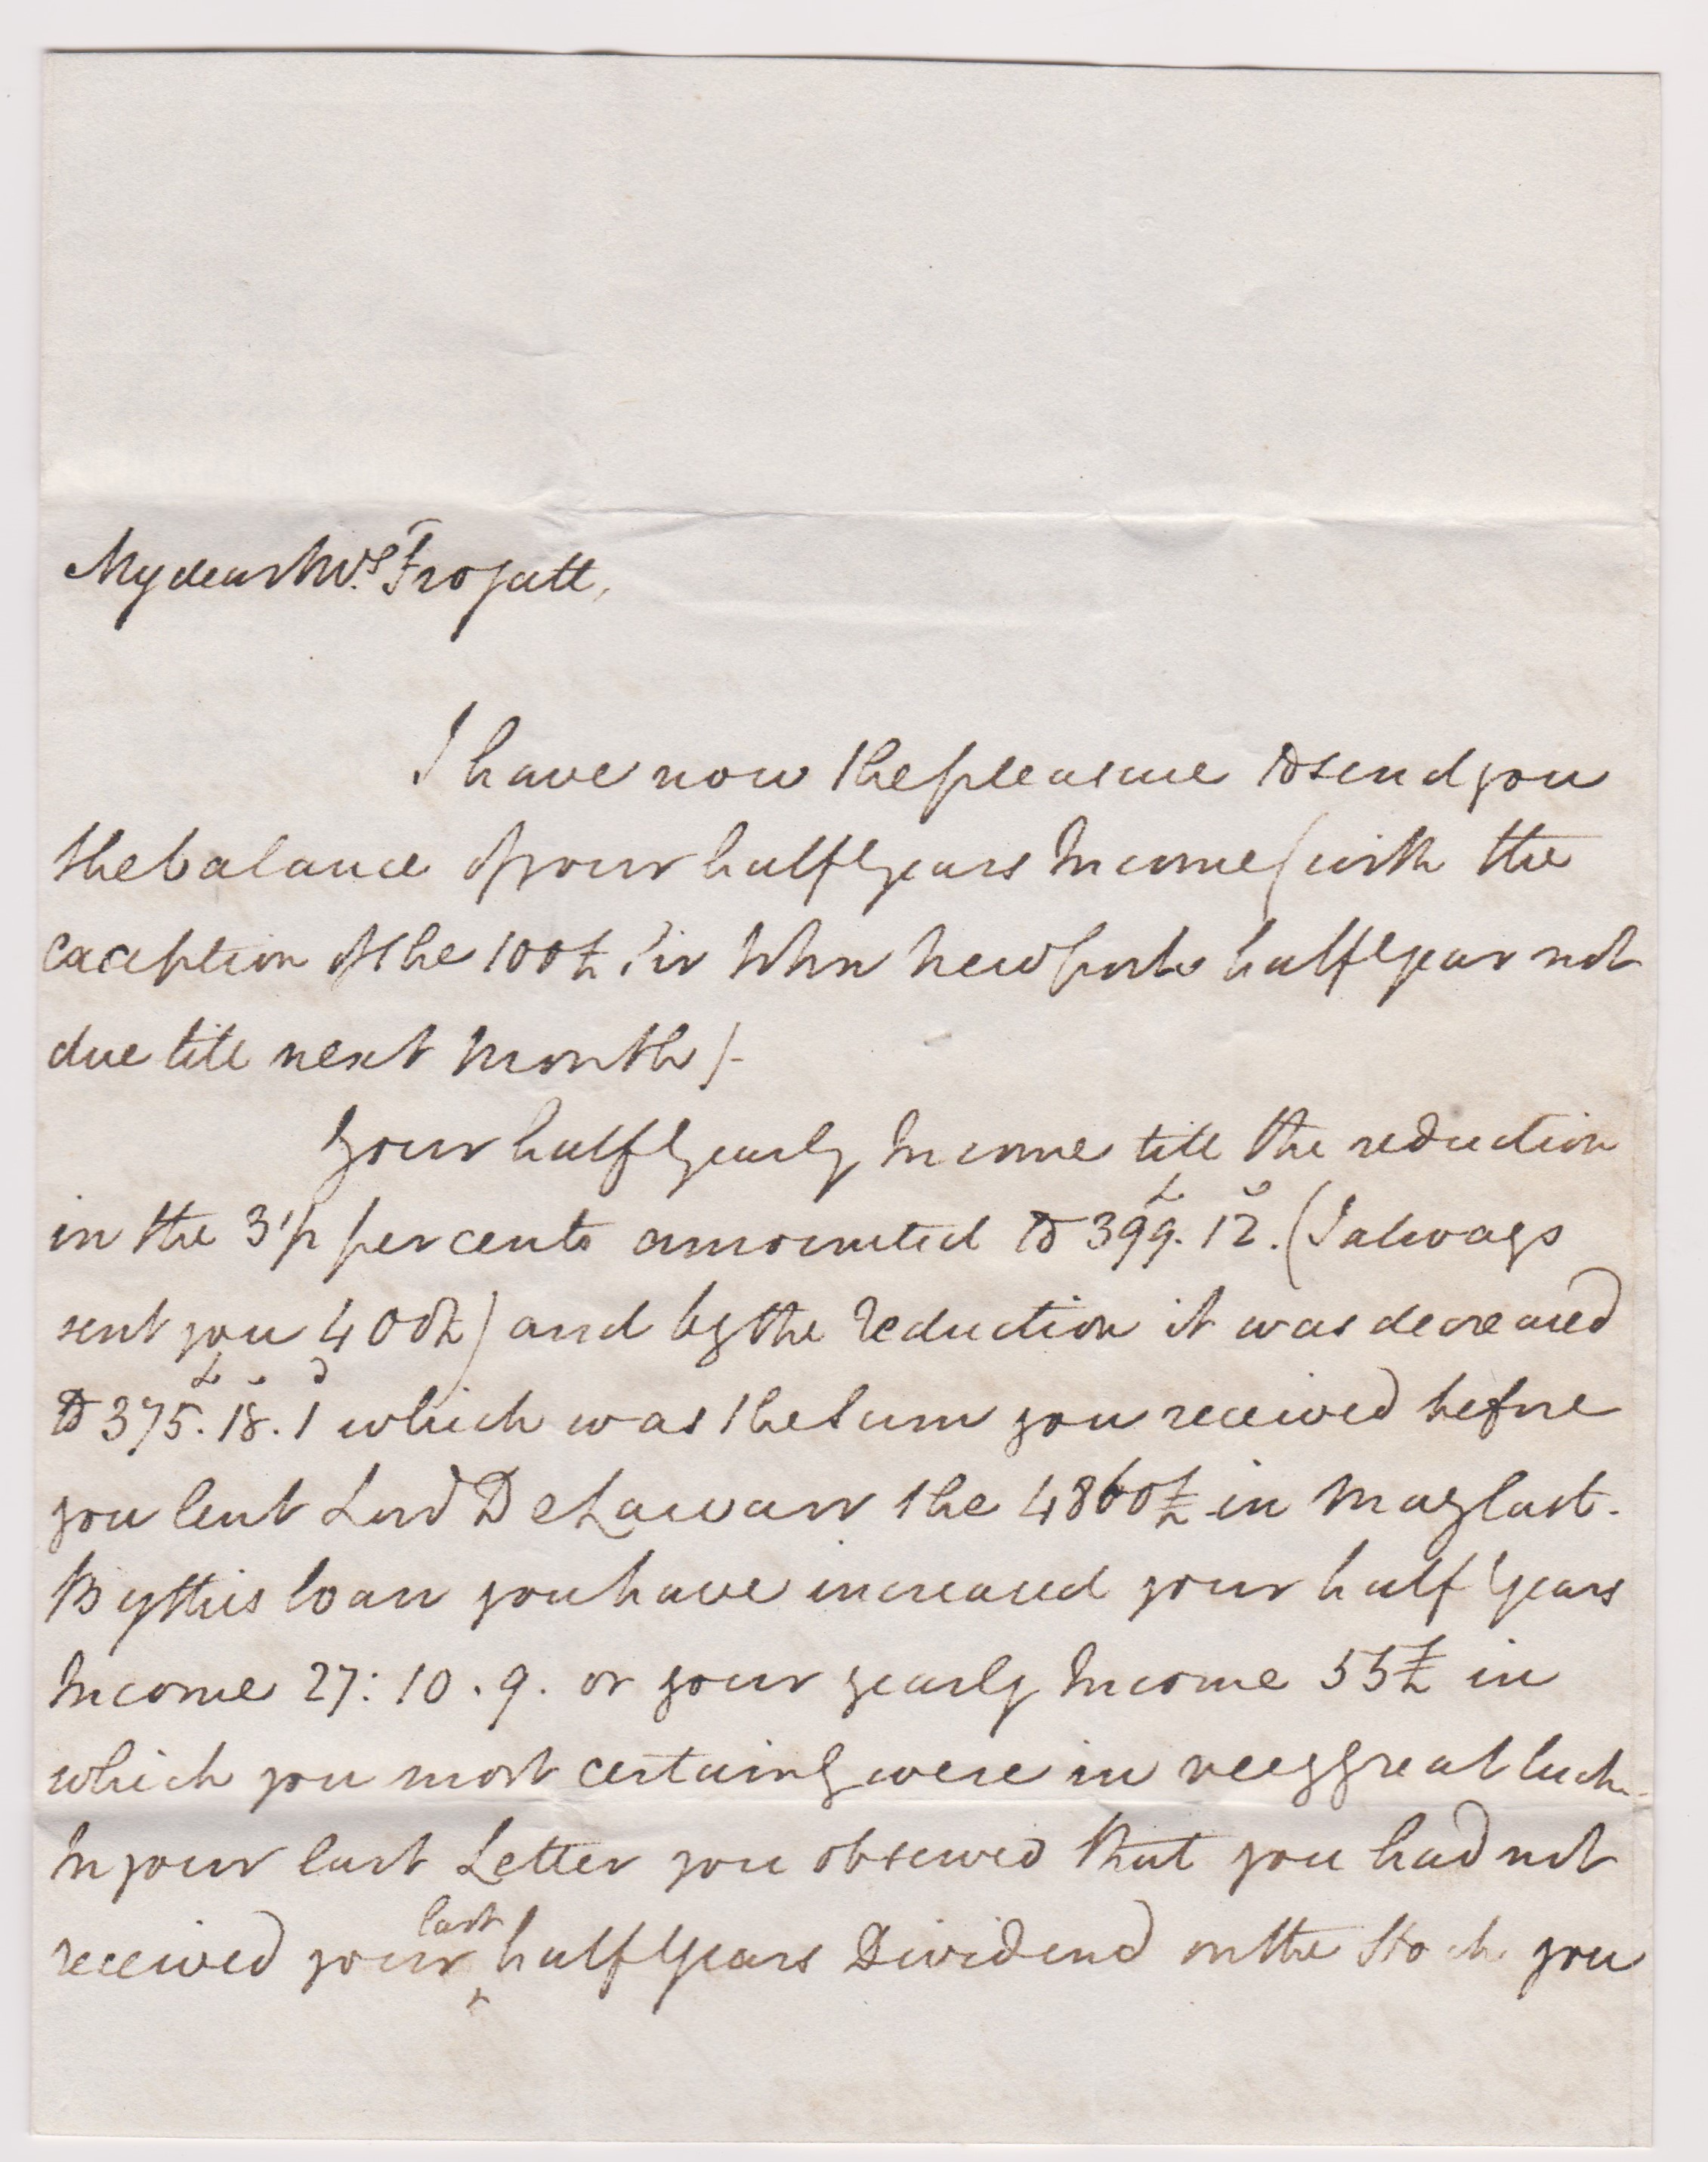 My dear Mrs Frogatt,
I have now the pleasure to send you
the balance of your half years Income (with the
exception of the 100£ Sir John Newports half year not
due till next Month)-
Your half yearly Income till the reduction
in the 3½ per cents amounted to £399. 12s. (I always
sent you 400£) and by the Reduction it was decreased
to £375. 18s. 1d which was the Sum you received before
you lent Lord De Lawarr the 4860£ in May last.
By this loan you have increased your half years
Income 27: 10. 9. or your yearly Income 55£ in
which you most certainly were in very great luck-
In your last Letter you observed that you had not
received your last half Years Dividend on the Stock you